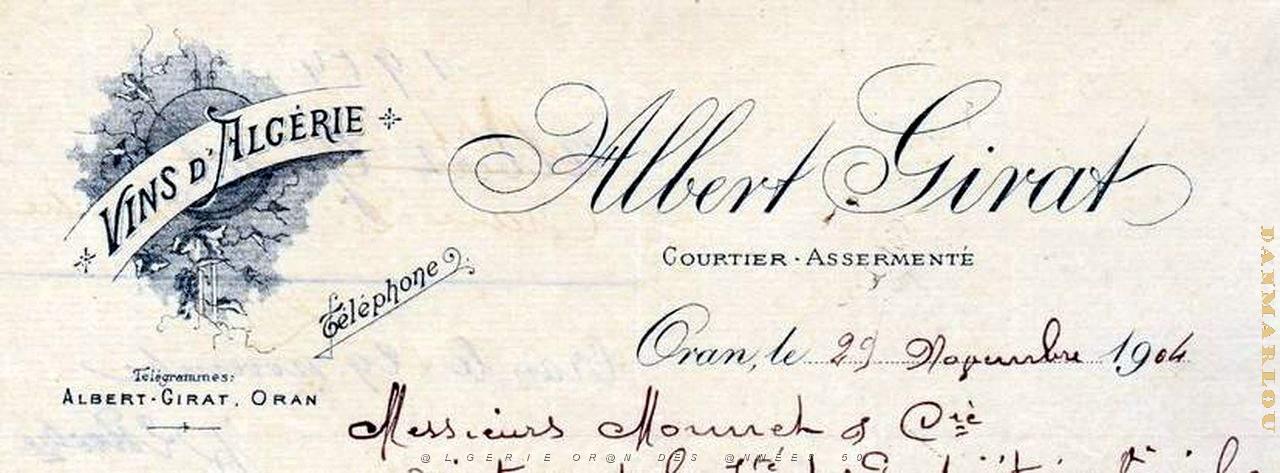 VINS D'ALGÉRIE
Albert Girat
COURTIER-ASSERMENTÉ
Téléphone
Oran, le 29 Novembre 1904
Télégrammes:
ALBERT-GIRAT, ORAN
Messieurs Mounet & Cie
@LGERIE OR@N DES @NNÉES 50
DANMARLOU